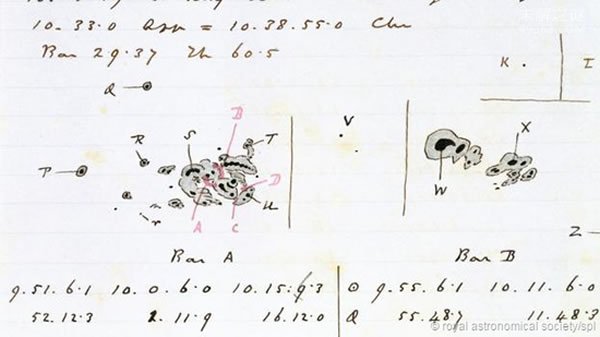 10. 33. 0 App = 10. 38. 55. 0
Bar 29. 37 Th 60. 5
K I
Q
B V X
R S T
P D
W
U
A C
Z
Bar A Bar B
9. 51. 6. 1 10. 0. 6. 0 10. 15. 9. 3 ⊙ 9. 55. 6. 1 10. 11. 6. 0
52. 12. 3 11. 9 16. 12. 0 Q 55. 48. 7 11. 48. 3
© royal astronomical society/spl